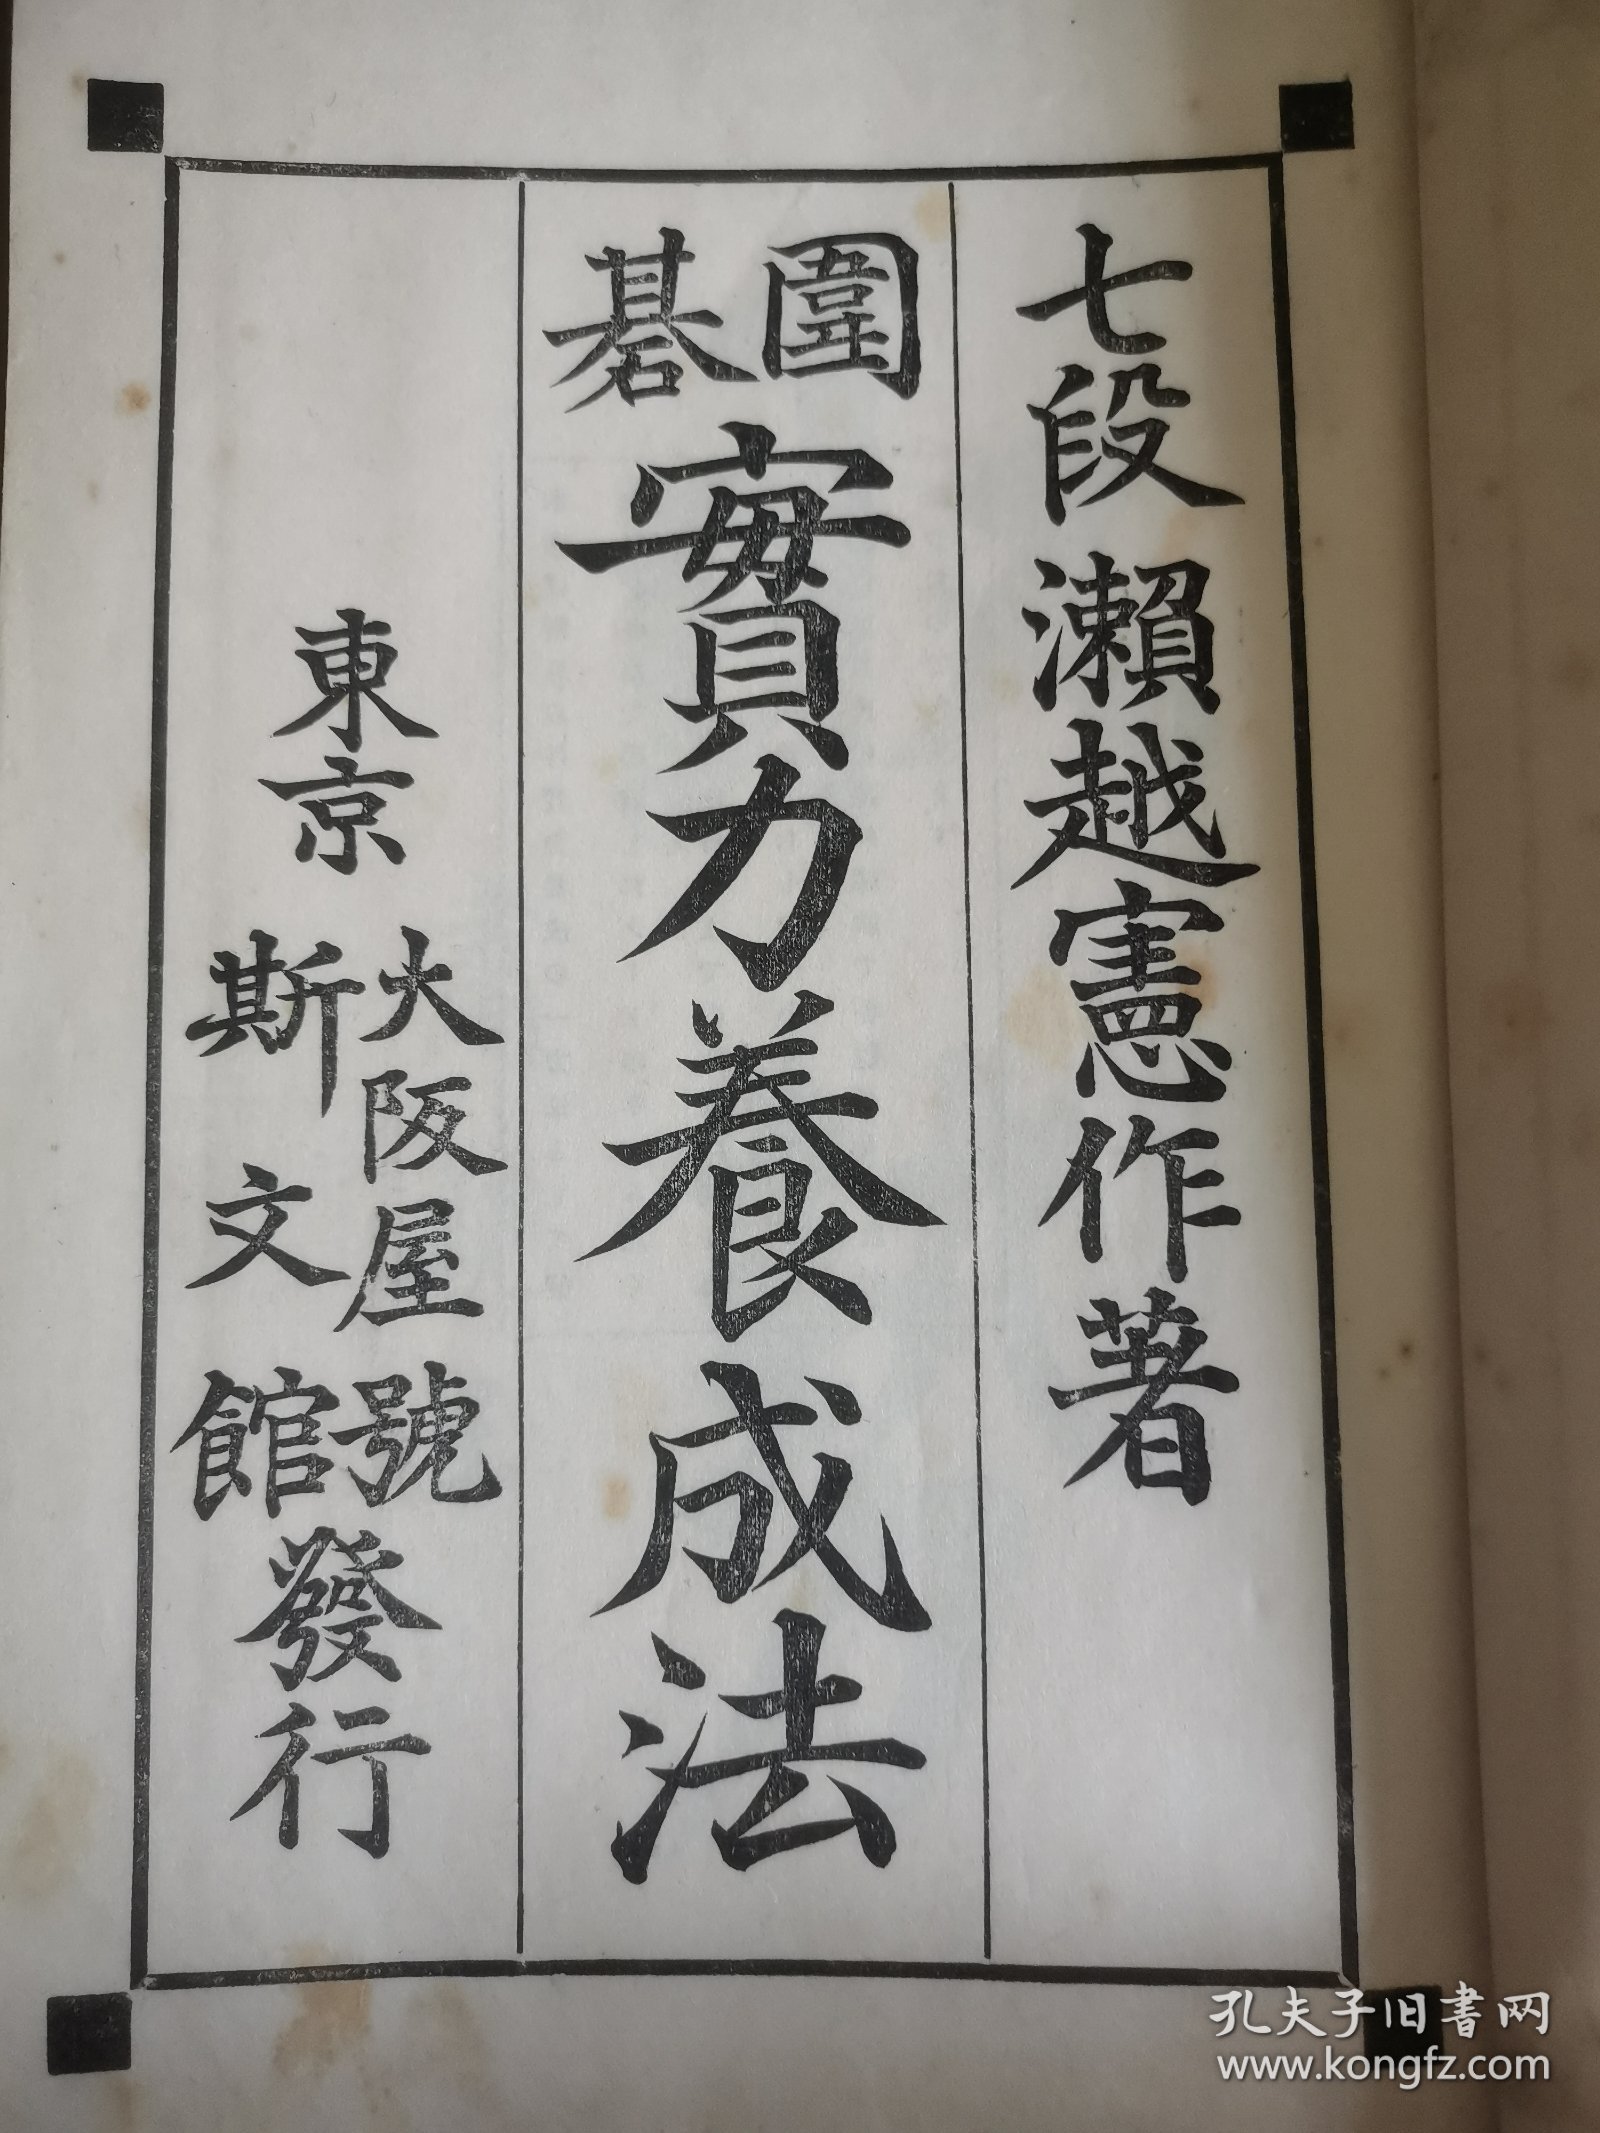 七段 瀨越憲作著
圍碁 實力養成法
東京 大阪屋號 斯文館 發行
孔夫子旧书网
www.kongfz.com